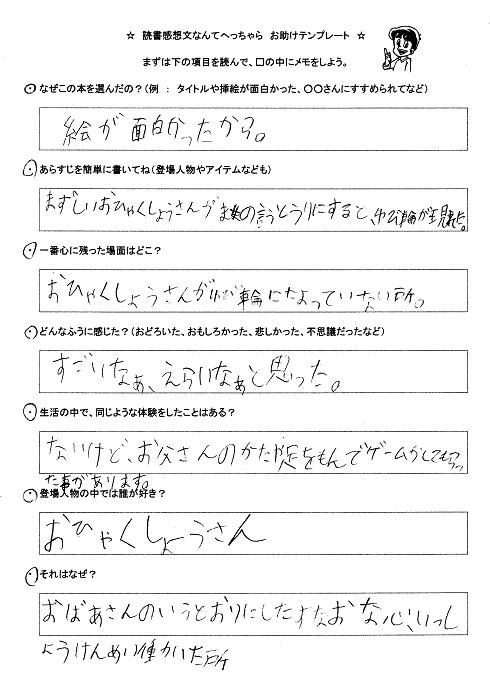 ☆ 読書感想文なんてへっちゃら お助けテンプレート ☆
まずは下の項目を読んで、□の中にメモをしよう。
なぜこの本を選んだの?(例 : タイトルや挿絵が面白かった、〇〇さんにすすめられてなど)
絵が面白かったから。
あらすじを簡単に書いてね(登場人物やアイテムなども)
まずしいおひゃくしょうさんが の言うとうりにすると、 輪が
一番心に残った場面はどこ?
おひゃくしょうさんが 輪にたよっていない所。
どんなふうに感じた?(おどろいた、おもしろかった、悲しかった、不思議だったなど)
すごいなぁ、えらいなぁと思った。
生活の中で、同じような体験をしたことはある?
ないけど、お父さんのかたや足をもんでゲームかしてもらっ
た事があります。
登場人物の中では誰が好き?
おひゃくしょうさん
それはなぜ?
おばあさんのいうとおりにしたすなおな心、いっし
ょうけんめい種かいた所